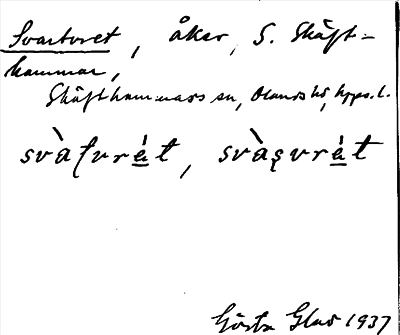 Svartvret, åker, S. Skäft-
hammar,
Skäfthammars sn, Olands hd, Upps. l.
svàʈvrét, svàʂvrét
Gösta Glas 1937